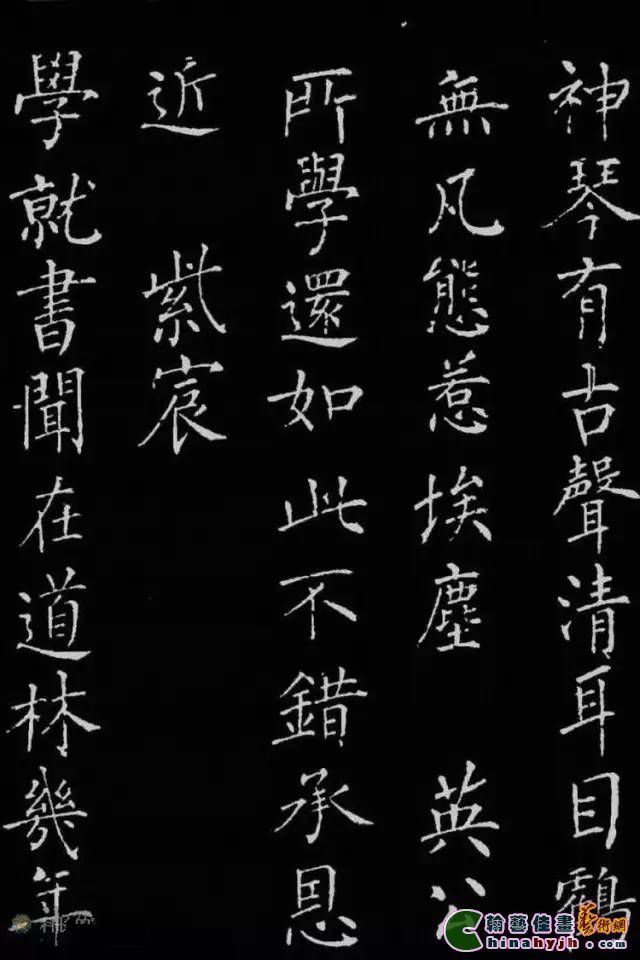 神琴有古聲清耳目鸖
無凡態惹埃塵 英公
所學還如此不錯承恩
近 紫宸
學就書聞在道林幾年
翰藝佳畫藝術網
Chinahyjh.com